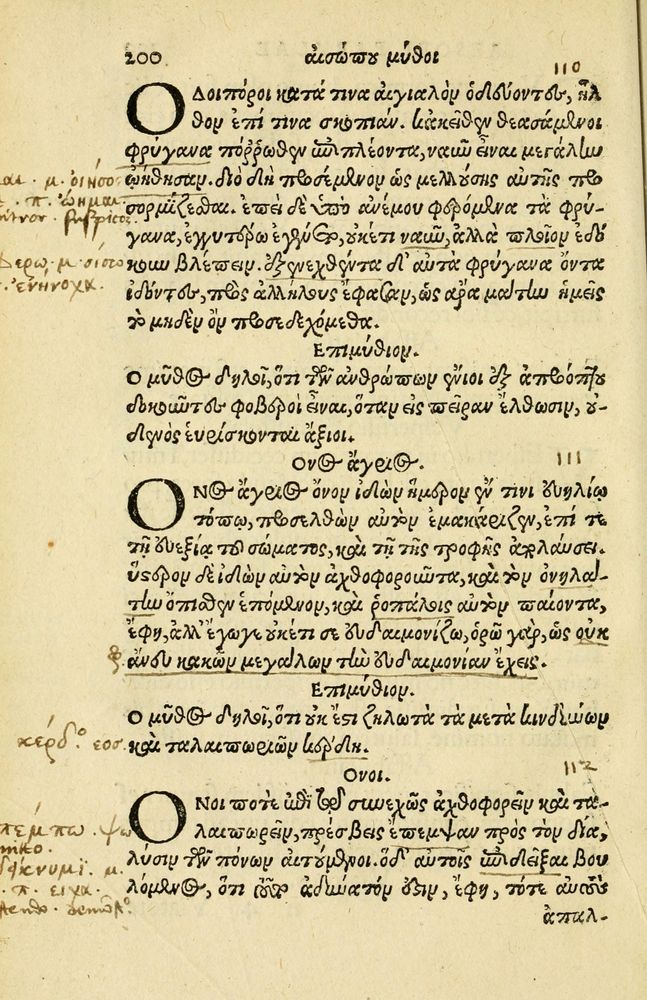 200 αἰσώπου μῦθοι
110
ΟΔοιπόροι κατά τινα αἰγιαλὸν ὁδεύοντες, ἦλ
θον ἐπί τινα σκοπιάν. κἀκεῖθεν θεασάμενοι
φρύγανα πόῤῥωθεν ἐπιπλέοντα, ναῦν εἶναι μεγάλην
ᾠήθησαν. διὸ δὴ προσέμενον ὡς μελλούσης αὐτῆς προ
σορμίζεσθαι. ἐπεὶ δὲ ὑπὸ ἀνέμου φερόμενα τὰ φρύ-
γανα, ἐγγυτέρω ἐγένετο, οὐκέτι ναῦν, ἀλλὰ πλοῖον ἐδό
κουν βλέπειν. ἐξενεχθέντα δ' αὐτὰ φρύγανα ὄντα
ἰδόντες, πρὸς ἀλλήλους ἔφασαν, ὡς ἄρα μάτην ἡμεῖς
τὸ μηδὲν ὂν προσεδεχόμεθα.
Επιμύθιον.
Ο μῦθος δηλοῖ, ὅτι τῶν ἀνθρώπων ἔνιοι ἐξ ἀπρόπτου
δοκοῦντες φοβεροὶ εἶναι, ὅταν εἰς πεῖραν ἔλθωσιν, οὐ-
δενὸς εὑρίσκονται ἄξιοι.
Ονος ἄγριος.
111
ΟΝος ἄγριος ὄνον ἰδὼν ἥμερον ἔν τινι εὐηλίῳ
τόπῳ, προσελθὼν αὐτὸν ἐμακάριζεν, ἐπί τε
τῇ εὐεξίᾳ τοῦ σώματος, καὶ τῇ τῆς τροφῆς ἀπολαύσει.
ὕστερον δὲ ἰδὼν αὐτὸν ἀχθοφοροῦντα, καὶ τὸν ὀνηλά-
την ὄπισθεν ἑπόμενον, καὶ ῥοπάλοις αὐτὸν παίοντα,
ἔφη, ἀλλ' ἔγωγε οὐκέτι σε εὐδαιμονίζω, ὁρῶ γάρ, ὡς οὐκ
ἄνευ κακῶν μεγάλων τὴν εὐδαιμονίαν ἔχεις.
Επιμύθιον.
Ο μῦθος δηλοῖ, ὅτι οὐκ ἔστι ζηλωτὰ τὰ μετὰ κινδύνων
κέρδ.ο εος.
καὶ ταλαιπωριῶν κέρδη.
Ονοι.
112
ΟΝοι ποτὲ ἐπὶ τῷ συνεχῶς ἀχθοφορεῖν καὶ τα-
λαιπωρεῖν, πρέσβεις ἔπεμψαν πρὸς τὸν δία,
λύσιν τῶν πόνων αἰτούμενοι. ὁ δ' αὐτοῖς ἐπιδεῖξαι βου
λόμενος, ὅτι τοῦτο ἀδύνατόν ἐστιν, ἔφη, τότε αὐτοὺς
ἀπαλ-